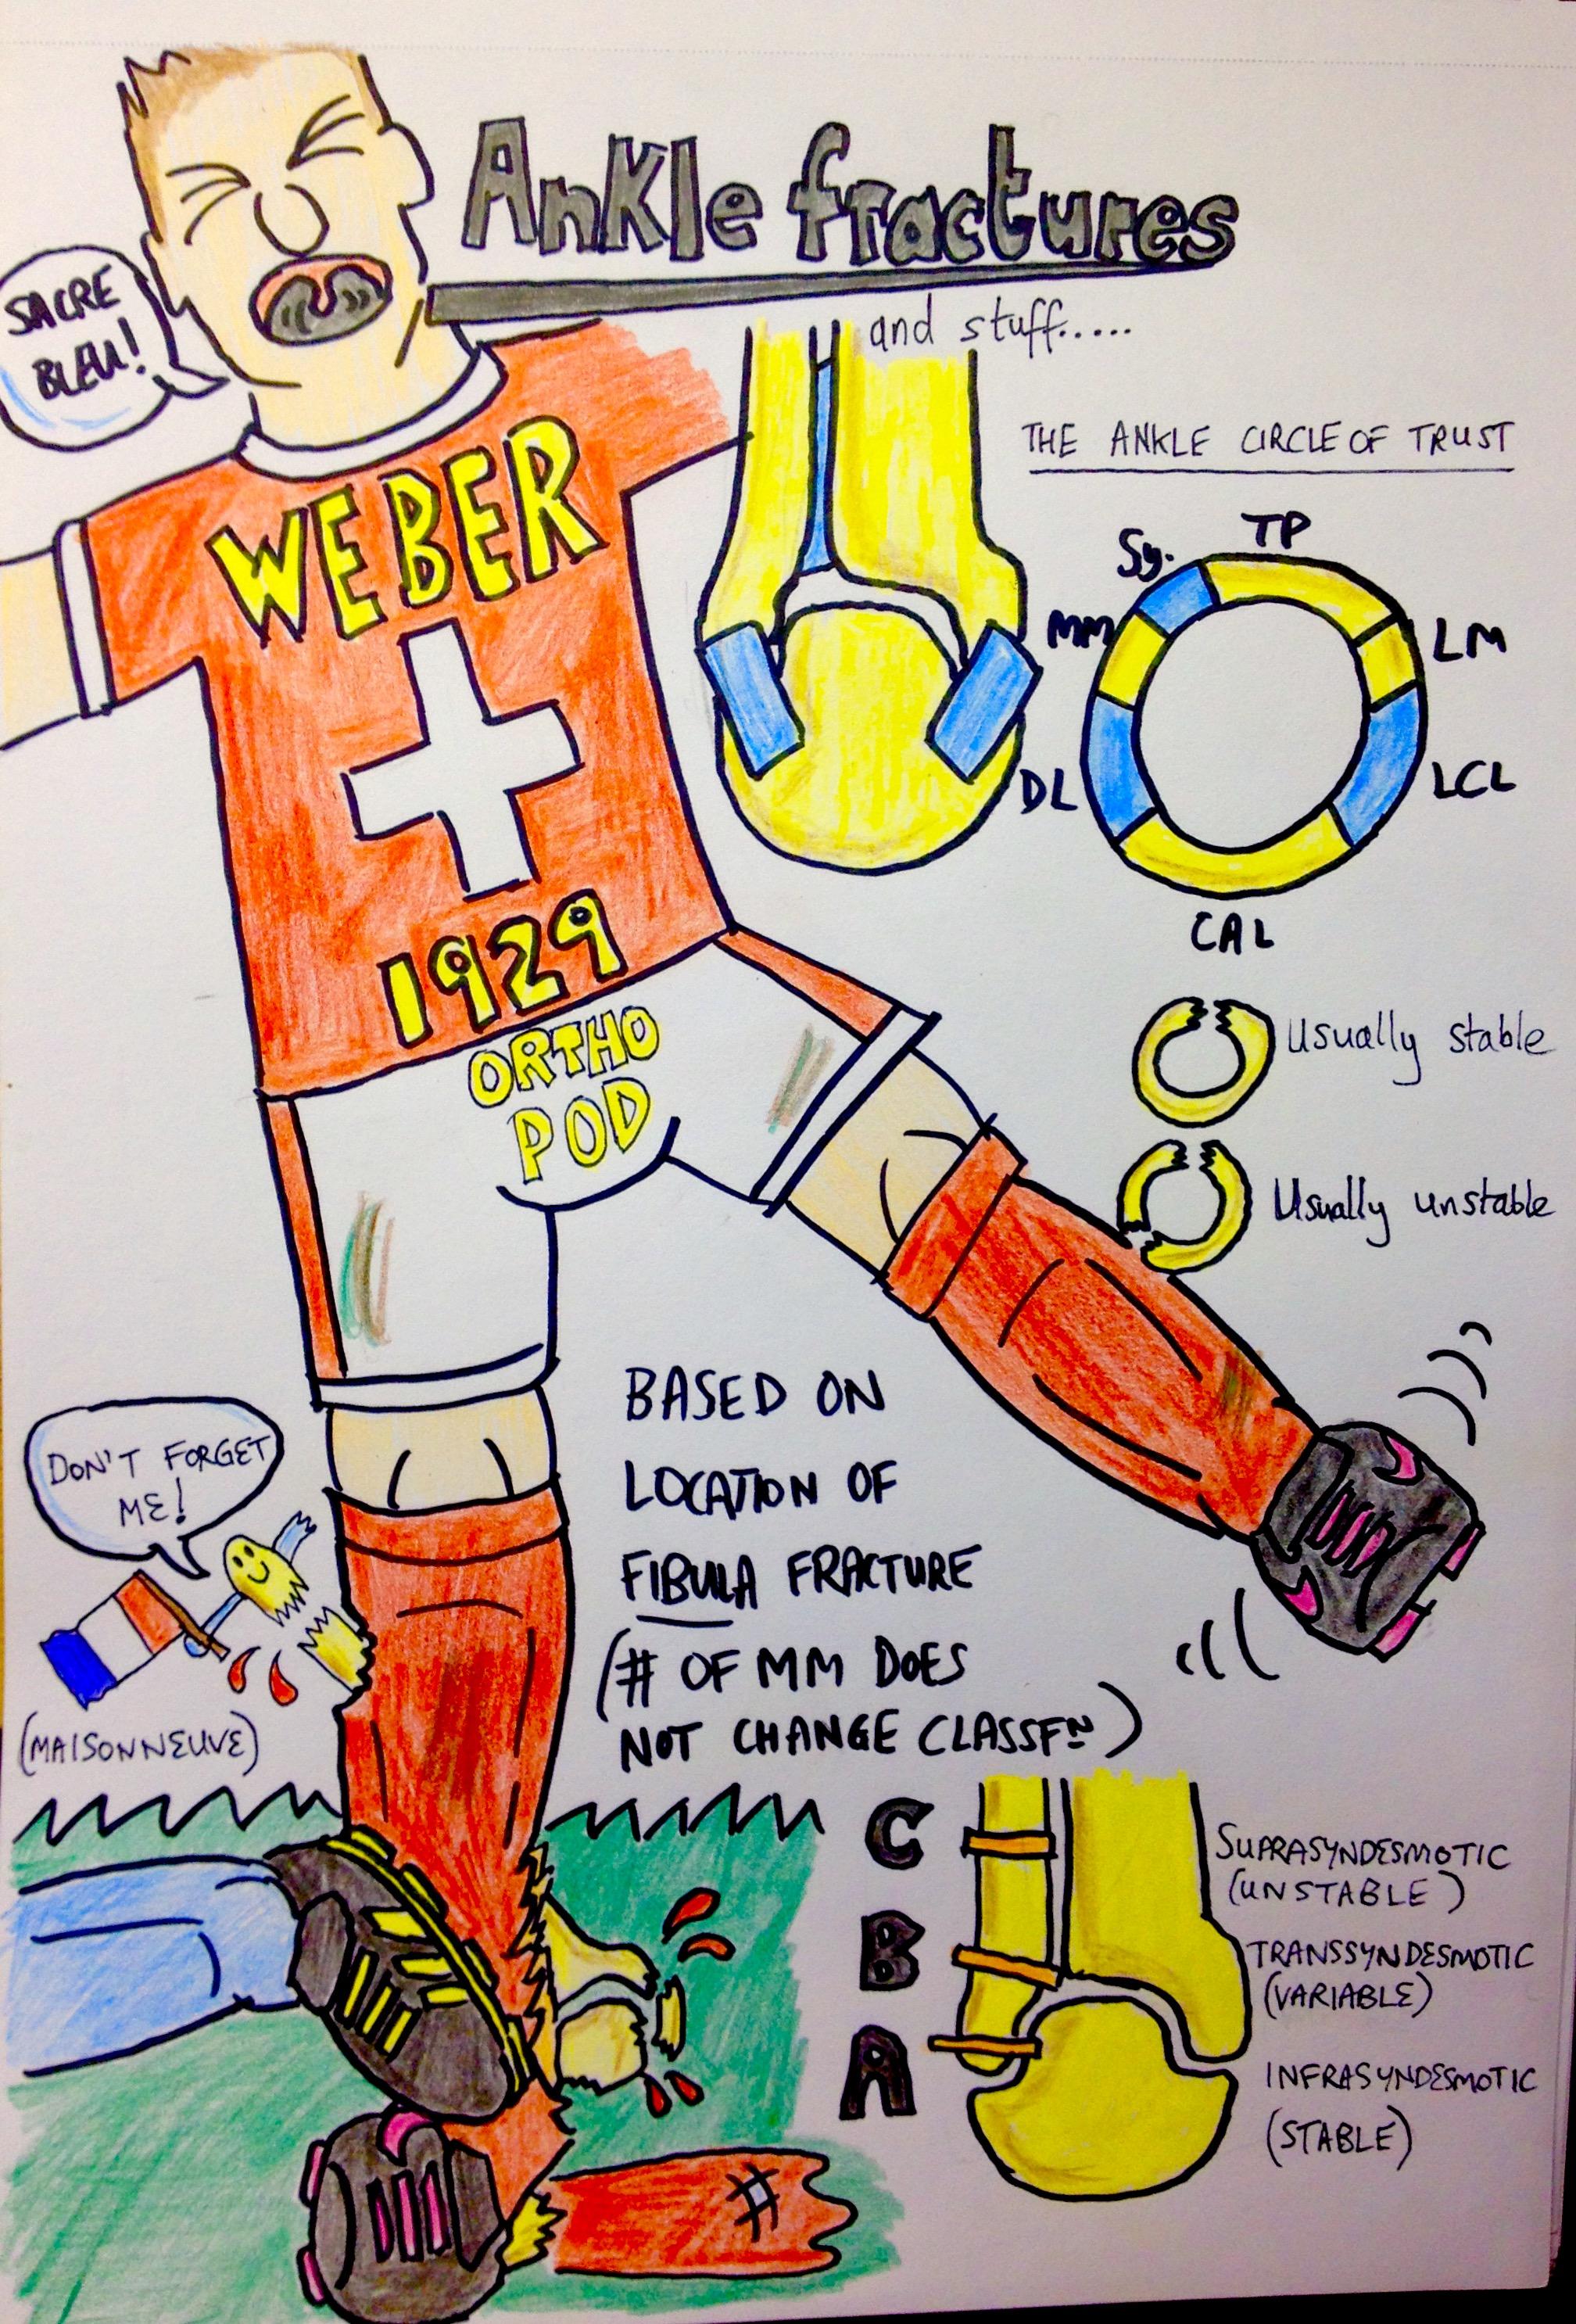 Ankle fractures
and stuff.....
SACRE
BLEU!
WEBER
1929
ORTHO
POD
THE ANKLE CIRCLE OF TRUST
TP
Sy.
MM
LM
DL
LCL
CAL
Usually stable
Usually unstable
BASED ON
LOCATION OF
FIBULA FRACTURE
(# OF MM DOES
NOT CHANGE CLASSFN)
DON'T FORGET
ME!
(MAISONNEUVE)
C
SUPRASYNDESMOTIC
(UNSTABLE)
B
TRANSSYNDESMOTIC
(VARIABLE)
A
INFRASYNDESMOTIC
(STABLE)
#